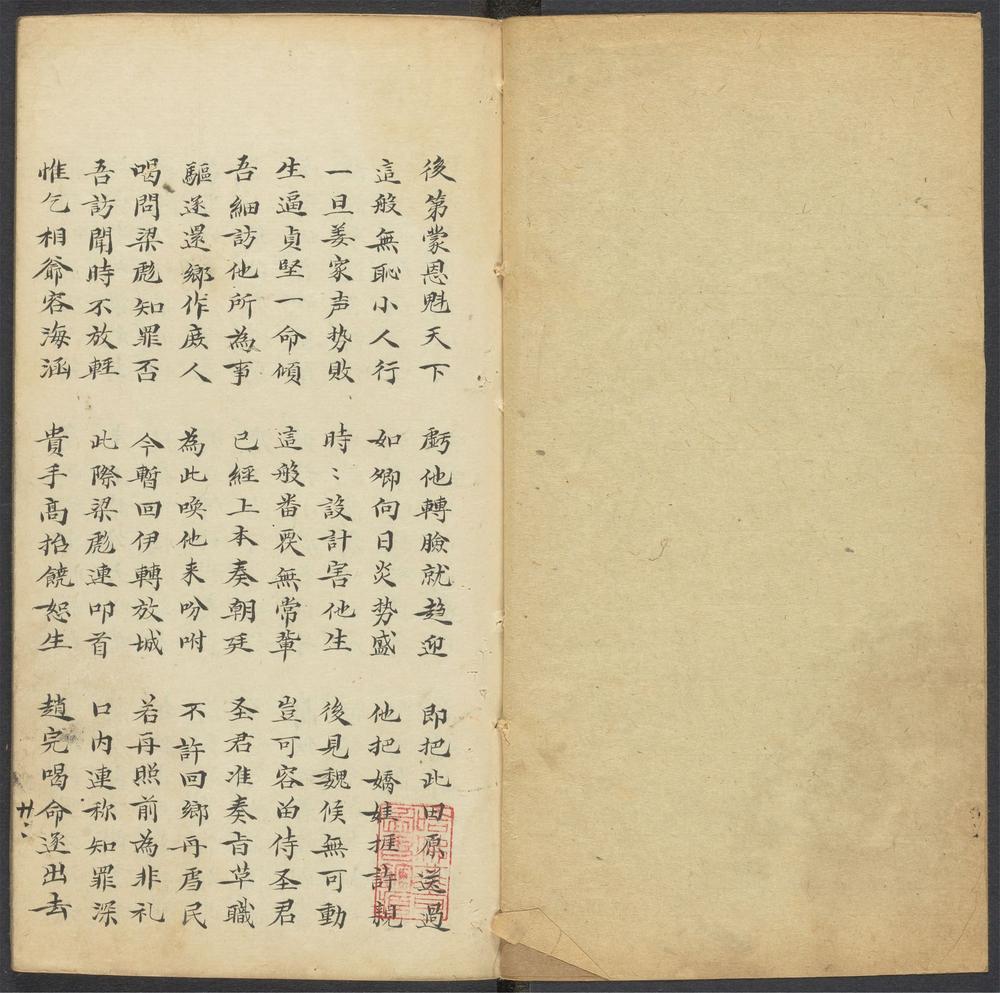 後第蒙恩魁天下　虧他轉臉就趋迎　即把此田原送過
這般無恥小人行　如卿向日炎势盛　他把嬌娃捱許親
一旦姜家声势敗　時〻設計害他生　後見魏候無可動
生逼貞堅一命傾　這般番覄無常輩　豈可容畄侍圣君
吾細訪他所為事　已經上本奏朝廷　圣君准奏旨草職
驅逐還鄉作庶人　為此喚他来吩咐　不許回鄉再虐民
喝問梁彪知罪否　今暫回伊轉放城　若再照前為非礼
吾訪聞時不放輊　此際梁彪連叩首　口内連称知罪深
惟乞相爺容海涵　貴手高抬饒恕生　趙完喝命逐出去
廿二